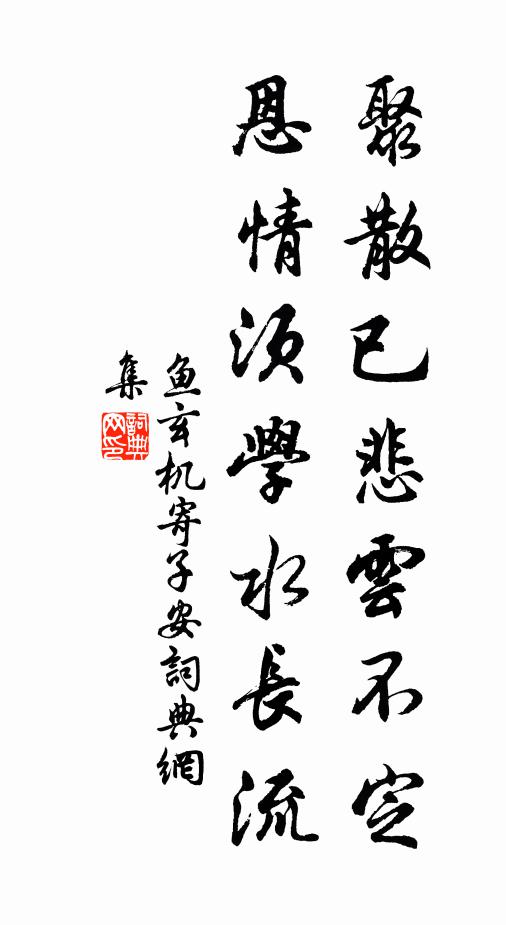 聚散已悲雲不定
恩情須學水長流
鱼玄机寄子安詞典網
集
詞典
网印